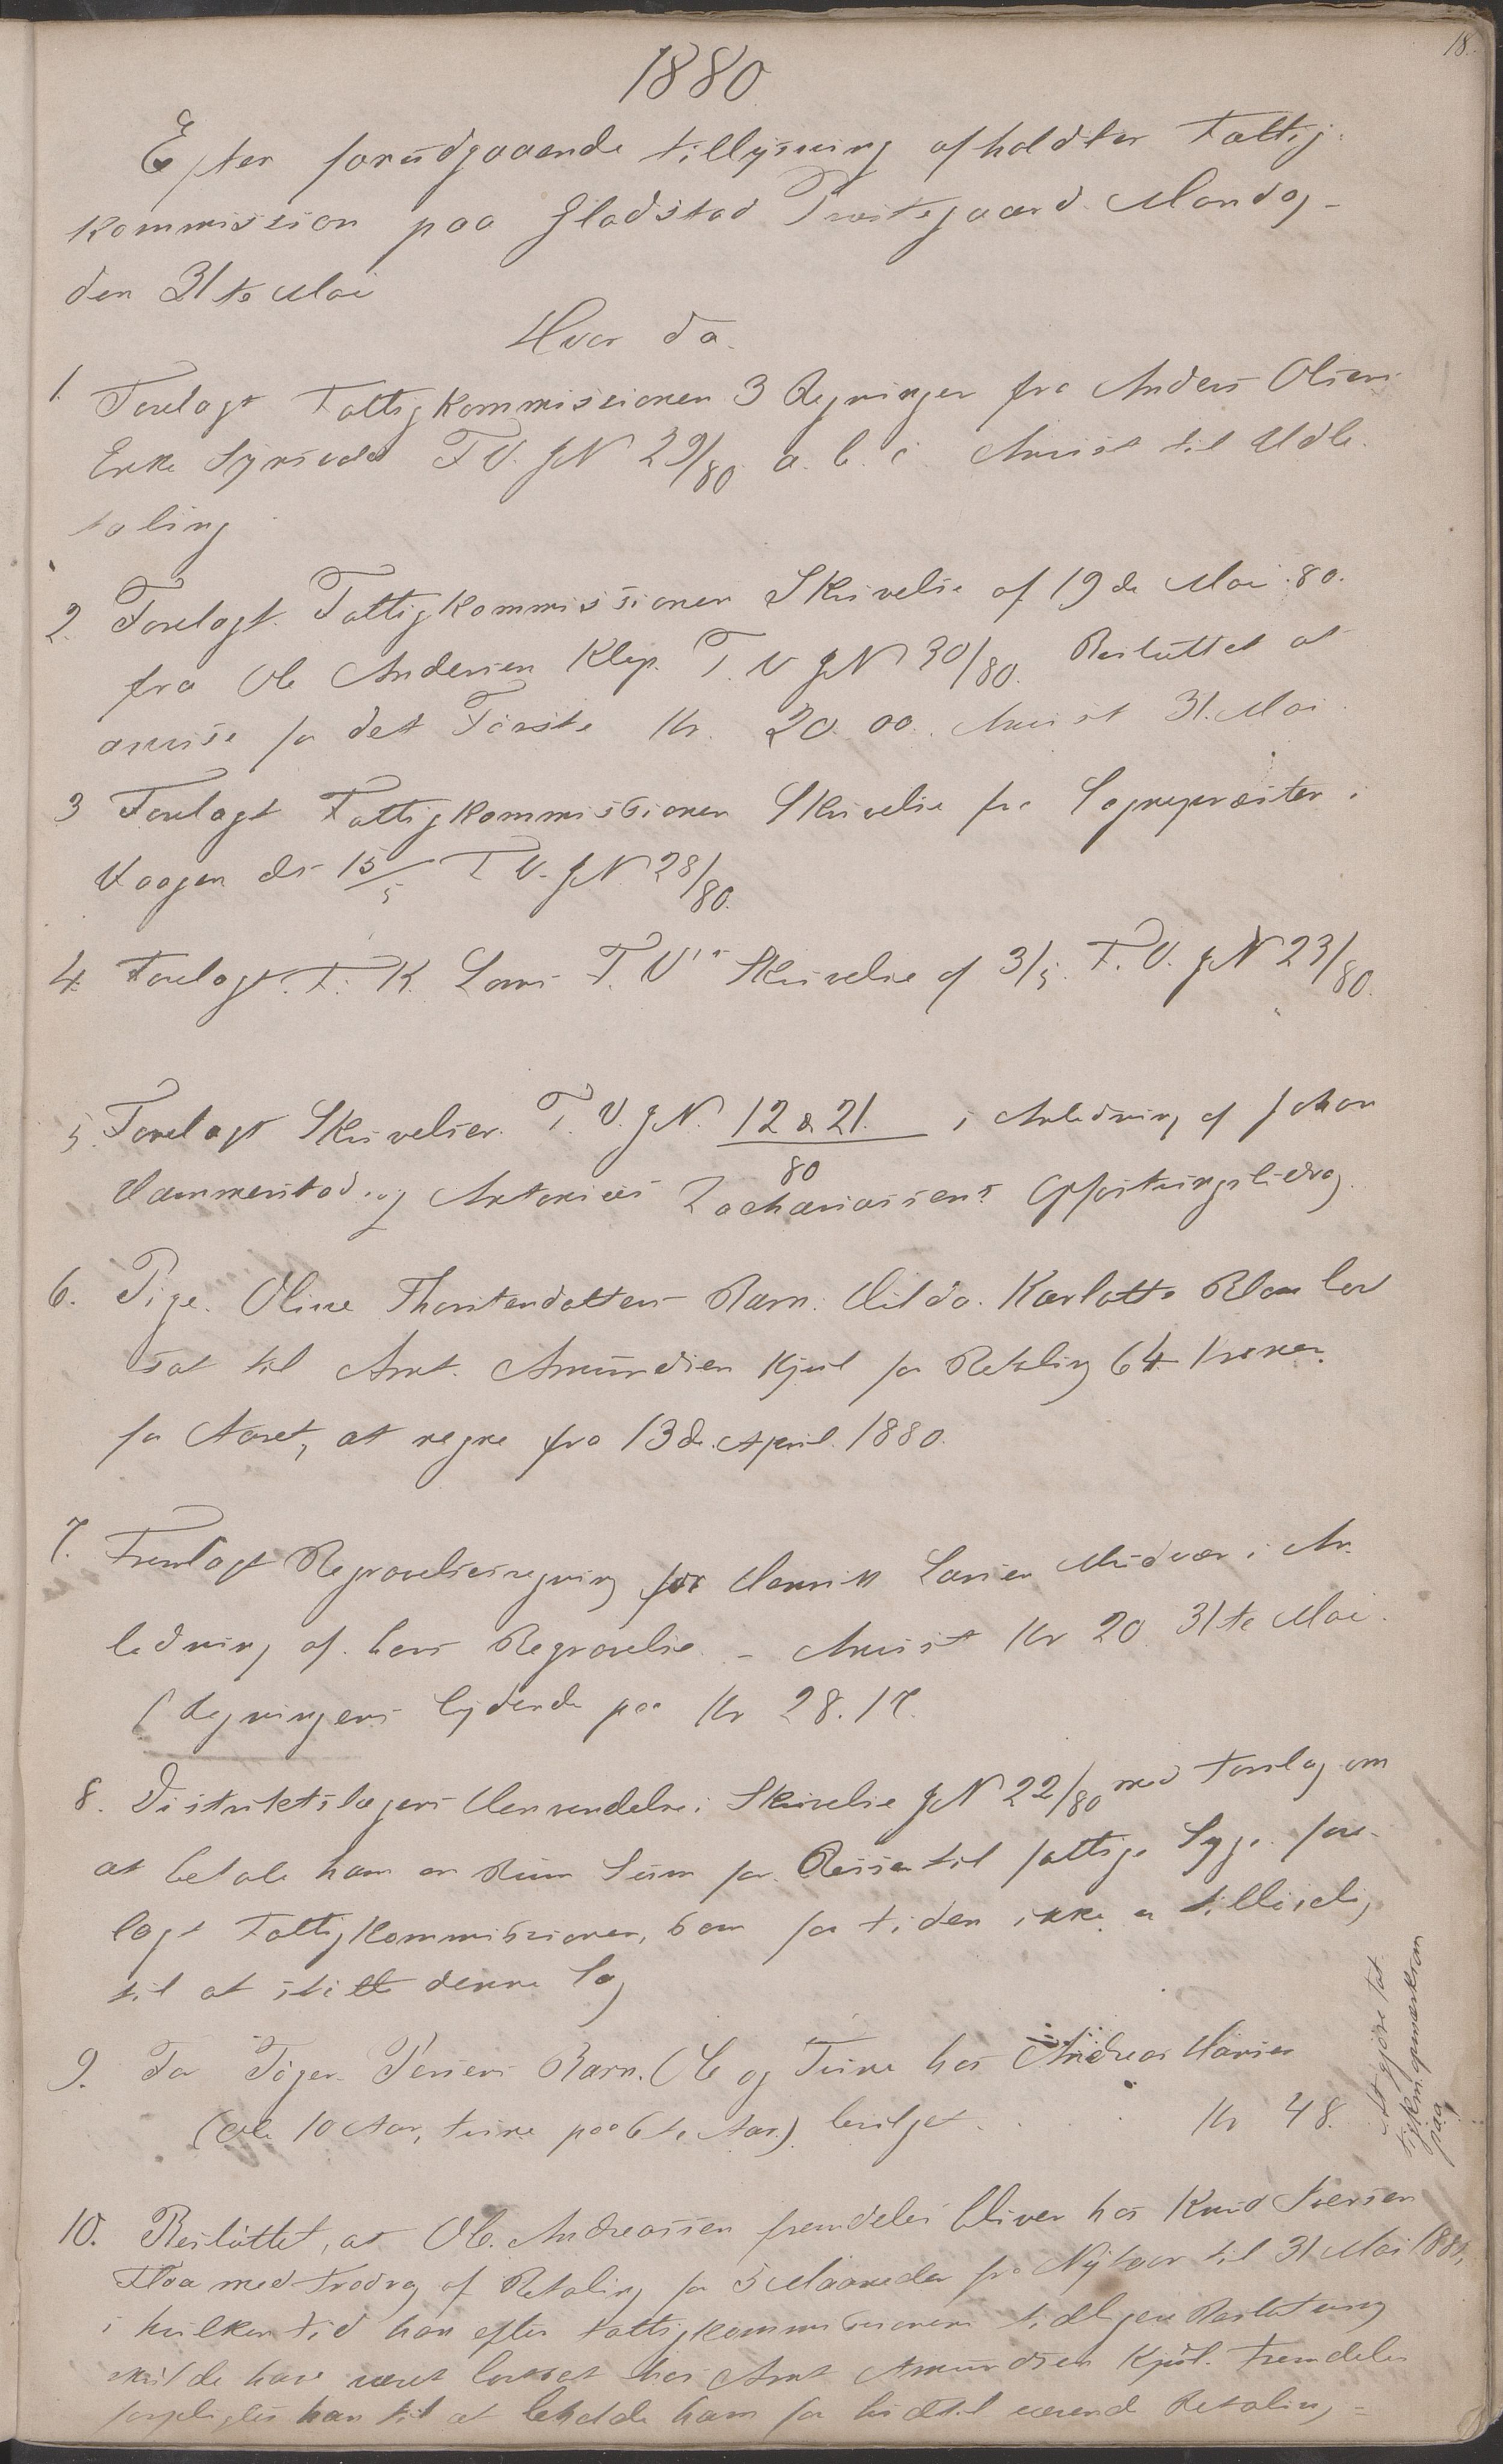 18.
1880
Efter forudgaaende tillysning afholdtes Fattig-
kommission paa Gladstad Præstegaard Mandag
den 31te Mai
Hvor da
1. Forelagt Fattigkommissionen 3 Regninger fra Anders Olsens
Enke T.V. JN 29/80 a. b. c. Anvist til Udbe-
taling
2. Forelagt Fattigkommissionen Skrivelse af 19de Mai 80.
fra Ole Andersen Klep. T. V JN 30/80. Besluttet at
anvise for det Første Kr. 20.00. Anvist 31. Mai
3 Forelagt Fattigkommissionen Skrivelse fra Sognepræsten i
Vaagen ds 15/5 T V. JN 28/80.
4. Forelagt F. K. T. V's Skrivelse af 3/5. T. V. JN 23/80.
5. Forelagt Skrivelser. T. V. JN. 12 & 21./80 i Anledning af Johan
Hammerstad og Antonius Zachariassens Opfostringsbidrag.
6. Pige Oline Thorstendatters Barn. Hilda Karlotta Blev bort
sat til Arnt. Amundsen Kjul for Betaling 64 Kroner
for Aaret, at regne fra 13de April 1880.
7. Fremlagt Begravelsesregning for Henrik Larsen i An-
ledning af hans Begravelse. - Anvist Kr 20 31te Mai.
(Regningens lydende paa Kr 28.17.
8. Distriktslægens Henvendelse i Skrivelse JN 22/80 med Forslag om
at betale ham en Sum for Reiser til fattige Syge fore-
lagt Fattigkommissionen, som for tiden ikke er
til at denne Sag
9. For Jøger Barn. Ole og Trine hos Andreas Hansen
(Ole 10 Aar, Trine paa 6te Aar) bevilget . . . Kr 48.
At gjøre Fat-
tigkom. opmærksom
paa
10. Besluttet, at Ole Andreassen fremdeles bliver hos Knud Iversen
Floa med Fradrag af Betaling for 5 Maaneder fra Nytaar til 31 Mai 1880,
i hvilken tid han efter Fattigkommissionens tidligere Beslutning
skulde have været bortsat hos Arnt Amundsen Kjul. Fremdeles
forpligtes han til at beholde ham for hidtil værende Betaling =